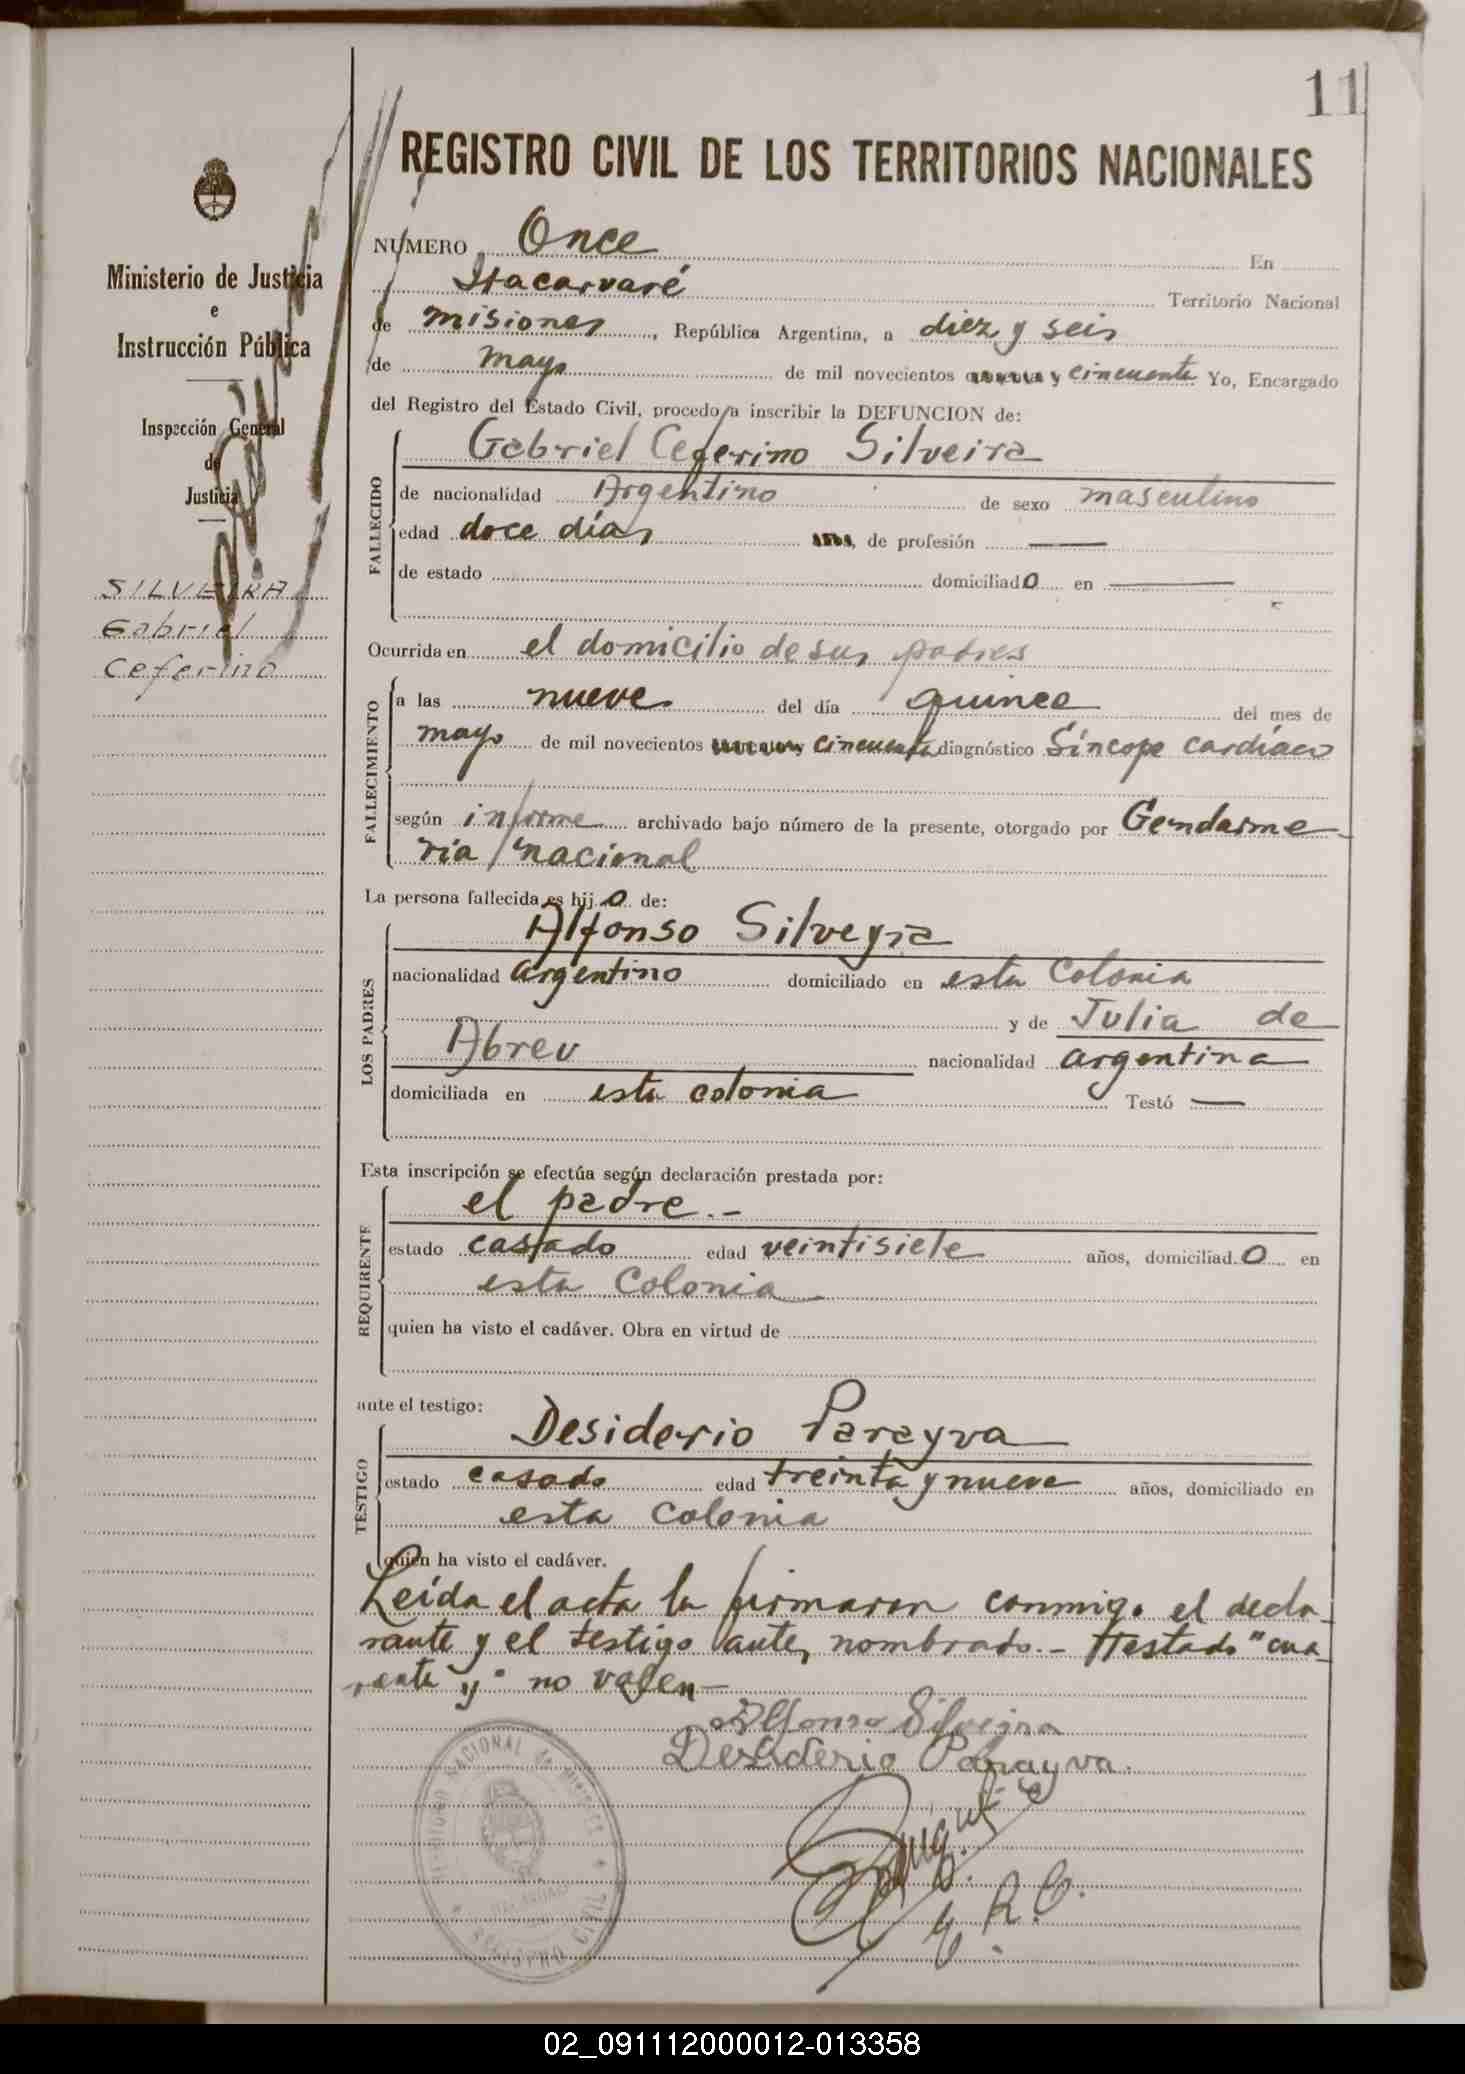 11
REGISTRO CIVIL DE LOS TERRITORIOS NACIONALES
Ministerio de Justicia
e
Instrucción Pública
Inspección General
de
Justicia
SILVEIRA
Gabriel
Ceferino
NUMERO Once En
Itacaruaré Territorio Nacional
de misiones, República Argentina, a diez y seis
de mayo de mil novecientos cuarenta y cincuenta Yo, Encargado
del Registro del Estado Civil, procedo a inscribir la DEFUNCION de:
Gabriel Ceferino Silveira
FALLECIDO
de nacionalidad Argentino de sexo masculino
edad doce días años, de profesión —
de estado domiciliado en —
Ocurrida en el domicilio de sus padres
FALLECIMIENTO
a las nueve del día quince del mes de
mayo de mil novecientos cincuenta diagnóstico Síncope cardíaco
según informe archivado bajo número de la presente, otorgado por Gendarme-
ría nacional
La persona fallecida es hijo de:
LOS PADRES
Alfonso Silveyra
nacionalidad argentino domiciliado en esta Colonia
y de Julia de
Abreu nacionalidad argentina
domiciliada en esta colonia Testó —
Esta inscripción se efectúa según declaración prestada por:
REQUIRENTE
el padre.-
estado casado edad veintisiete años, domiciliado en
esta Colonia
quien ha visto el cadáver. Obra en virtud de
ante el testigo:
TESTIGO
Desiderio Parayva
estado casado edad treinta y nueve años, domiciliado en
esta colonia
quien ha visto el cadáver.
Leída el acta la firmaron conmigo el decla-
rante y el testigo antes nombrado.- Testado "cua-
renta y" no valen—
Alfonso Silveira
Desiderio Parayva.
E. R. C.
NACIONAL de Misiones
REGISTRO CIVIL
02_091112000012-013358